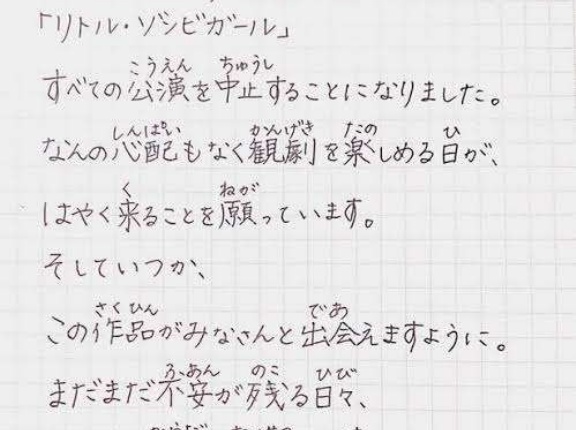 「リトル・ゾンビガール」
こうえん ちゅうし
すべての公演を中止することになりました。
しんぱい かんげき たの ひ
なんの心配もなく観劇を楽しめる日が、
く ねが
はやく来ることを願っています。
そしていつか、
さくひん であ
この作品がみなさんと出会えますように。
ふあん のこ ひび
まだまだ不安が残る日々、